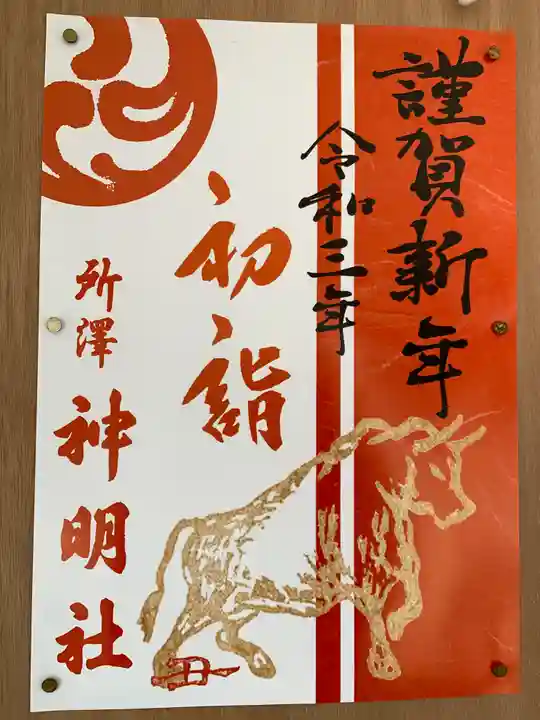 謹賀新年
令和三年
初詣
所澤
神明社
丑